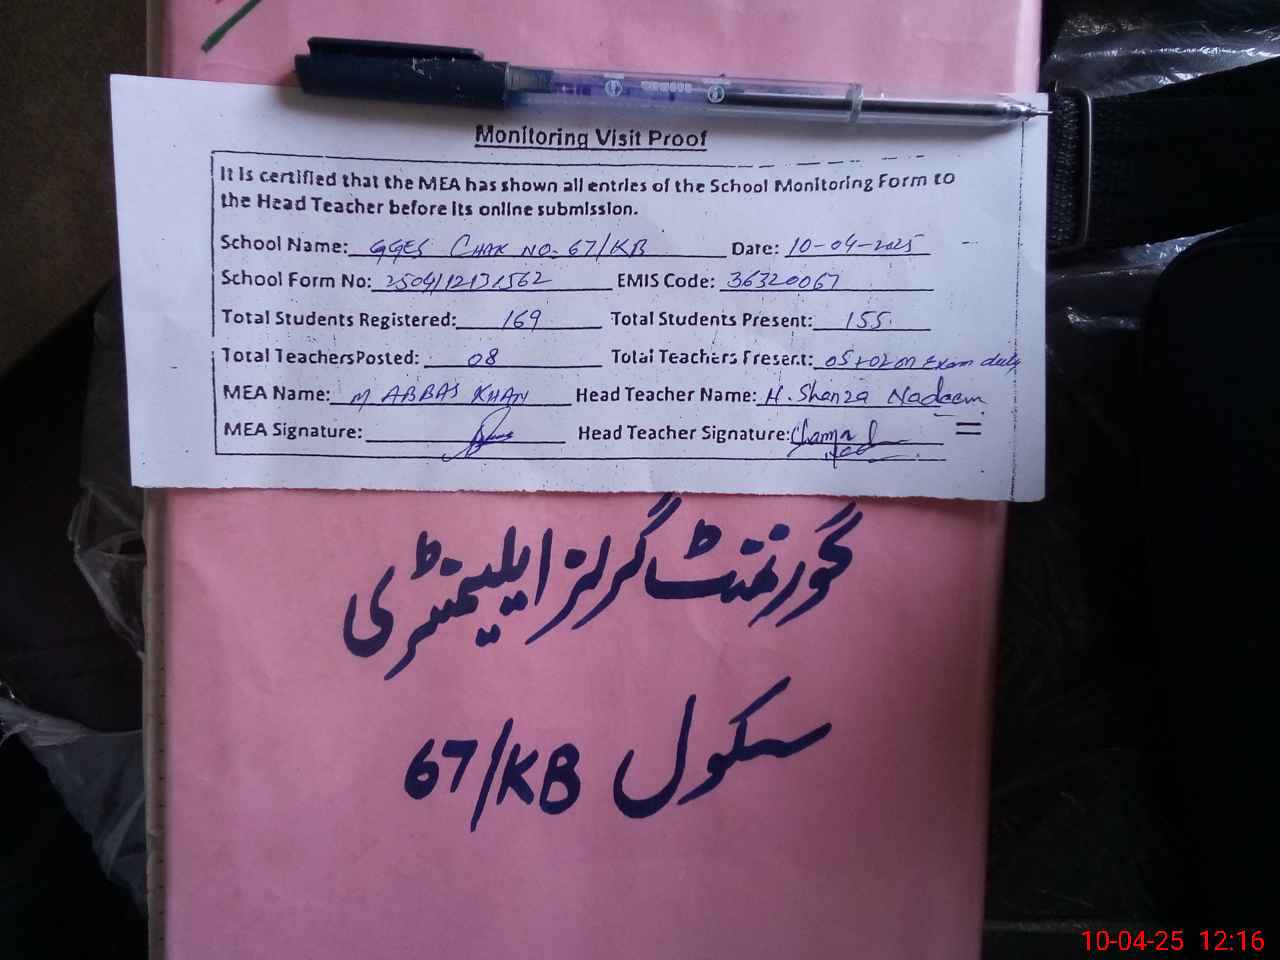 Monitoring Visit Proof
It is certified that the MEA has shown all entries of the School Monitoring Form to
the Head Teacher before its online submission.
School Name: GGES CHAK NO. 67/KB Date: 10-04-2025
School Form No: 2504/12131562 EMIS Code: 36320067
Total Students Registered: 169 Total Students Present: 155
Total Teachers Posted: 08 Total Teachers Present: 05+02 on Exam duty
MEA Name: M ABBAS KHAN Head Teacher Name: H. Shanza Nadeem
MEA Signature: Head Teacher Signature:
گورنمنٹ گرلز ایلیمنٹری
سکول 67/KB
10-04-25 12:16